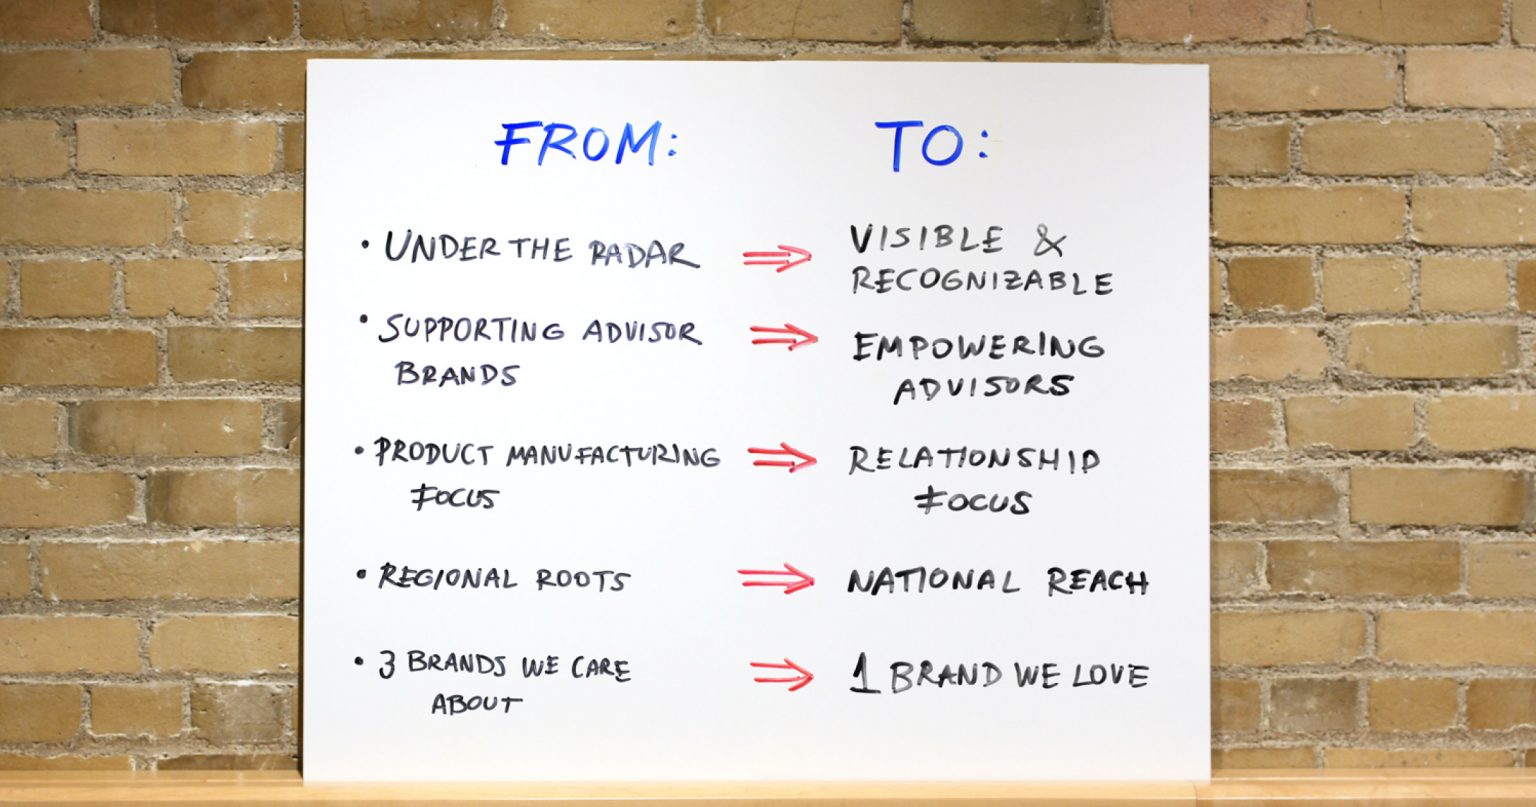 FROM: TO:
• UNDER THE RADAR ⇒ VISIBLE &
RECOGNIZABLE
• SUPPORTING ADVISOR
BRANDS ⇒ EMPOWERING
ADVISORS
• PRODUCT MANUFACTURING
FOCUS ⇒ RELATIONSHIP
FOCUS
• REGIONAL ROOTS ⇒ NATIONAL REACH
• 3 BRANDS WE CARE
ABOUT ⇒ 1 BRAND WE LOVE